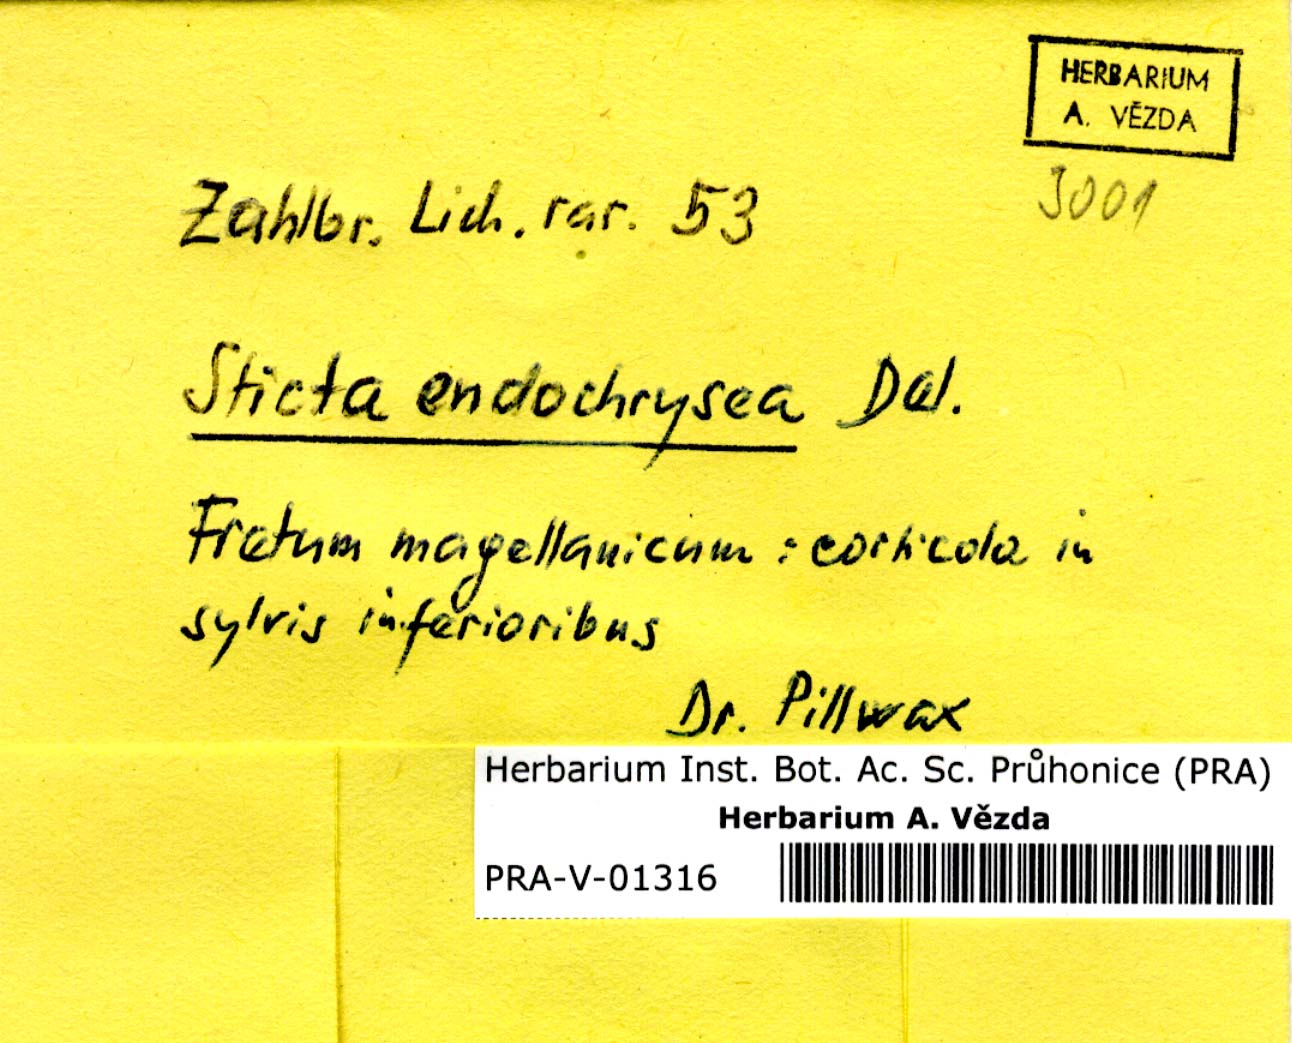 HERBARIUM
A. VĚZDA
3001
Zahlbr. Lich. rar. 53
Sticta endochrysea Dal.
Fretum magellanicum : corticola in
sylvis inferioribus
Dr. Pillwax
Herbarium Inst. Bot. Ac. Sc. Průhonice (PRA)
Herbarium A. Vězda
PRA-V-01316